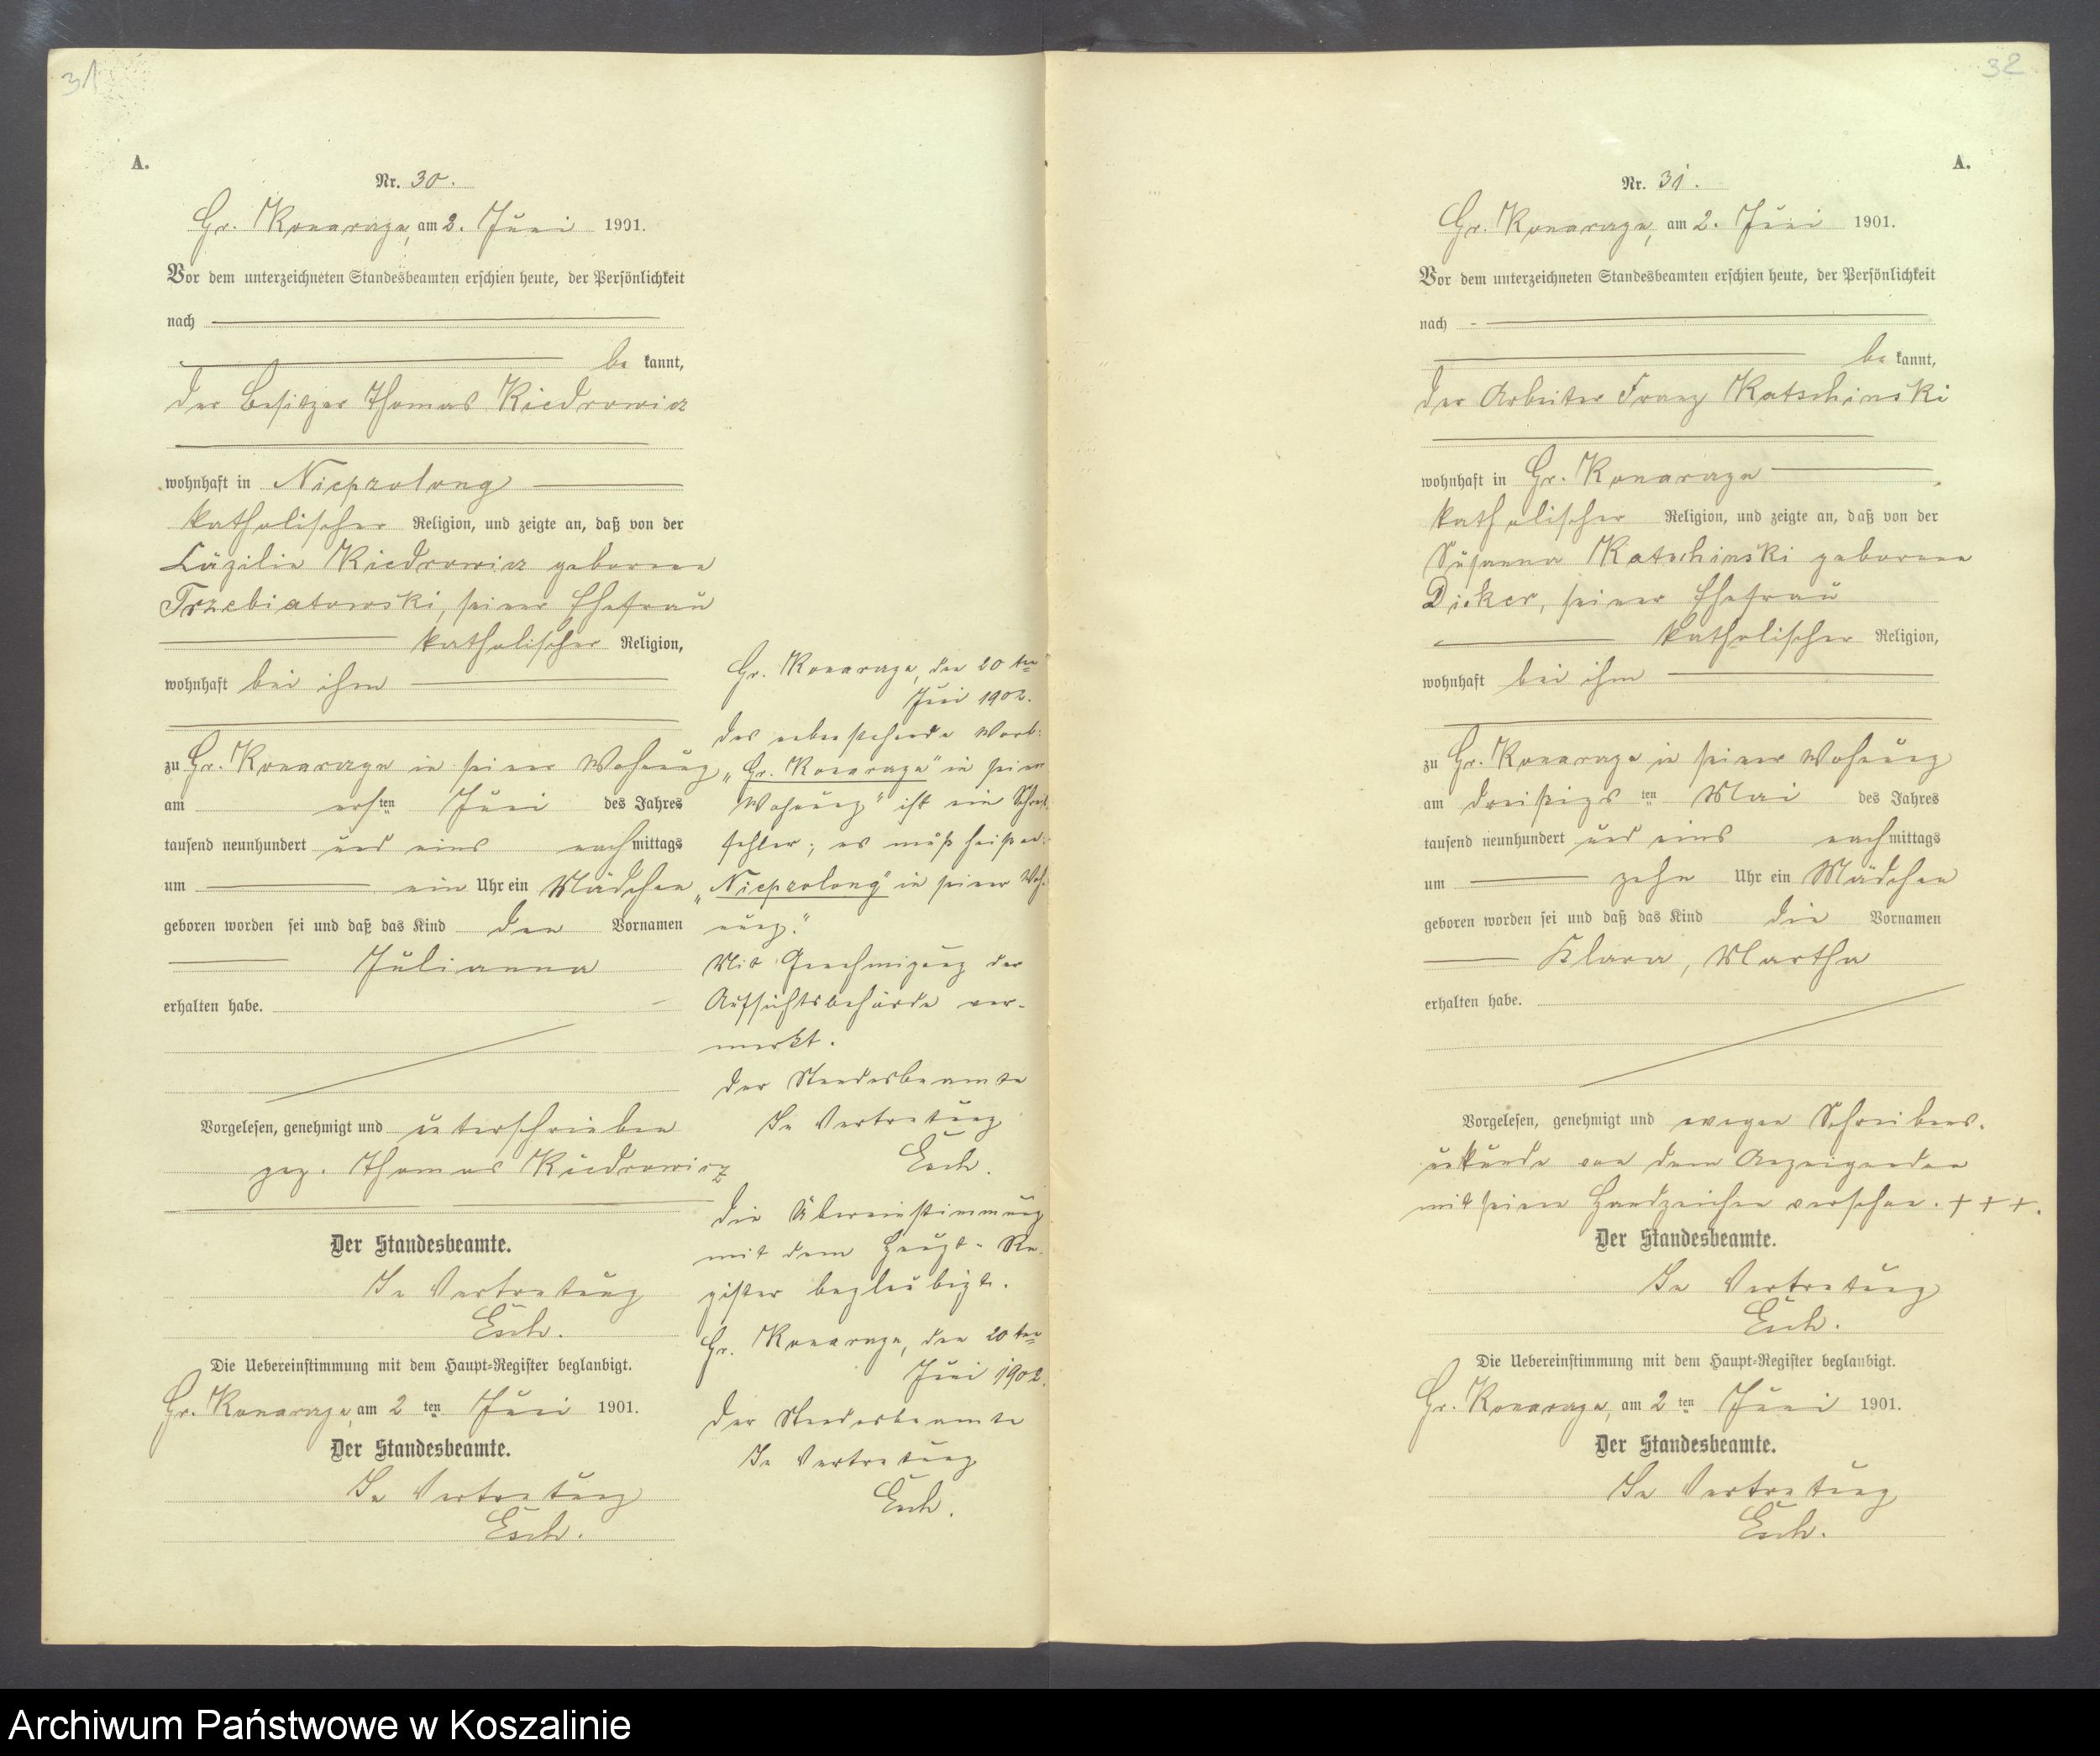 31
A.
Nr. 30.
Gr. Konarzyn, am 2. Juni 1901.
Vor dem unterzeichneten Standesbeamten erschien heute, der Persönlichkeit
nach
be kannt,
der Besitzer Thomas Kiedrowicz
wohnhaft in Niepzolong
katholischer Religion, und zeigte an, daß von der
Cäzilie Kiedrowicz geborene
Trzebiatowski, seiner Ehefrau
katholischer Religion,
wohnhaft bei ihm
zu Gr. Konarzyn in seiner Wohnung
am ersten Juni des Jahres
tausend neunhundert und eins nachmittags
um ein Uhr ein Mädchen
geboren worden sei und daß das Kind den Vornamen
Julianna
erhalten habe.
Vorgelesen, genehmigt und unterschrieben
gez. Thomas Kiedrowicz
Der Standesbeamte.
In Vertretung
Esch.
Die Uebereinstimmung mit dem Haupt-Register beglaubigt.
Gr. Konarzyn, am 2 ten Juni 1901.
Der Standesbeamte.
In Vertretung
Esch.
Gr. Konarzyn, den 20 ten
Juni 1902.
Das nebenstehende Wort:
„Gr. Konarzyn" in seiner
Wohnung" ist ein Schreib
fehler; es muß heißen:
„Niepzolong" in seiner Woh-
nung."
Mit Genehmigung der
Aufsichtsbehörde ver-
merkt.
Der Standesbeamte
In Vertretung
Esch.
Die Übereinstimmung
mit dem Haupt-Re-
gister beglaubigt.
Gr. Konarzyn, den 20 ten
Juni 1902.
Der Standesbeamte
In Vertretung
Esch.
32
A.
Nr. 31.
Gr. Konarzyn, am 2. Juni 1901.
Vor dem unterzeichneten Standesbeamten erschien heute, der Persönlichkeit
nach
be kannt,
der Arbeiter Franz Katschinski
wohnhaft in Gr. Konarzyn
katholischer Religion, und zeigte an, daß von der
Susanna Katschinski geborene
Dicker, seiner Ehefrau
katholischer Religion,
wohnhaft bei ihm
zu Gr. Konarzyn in seiner Wohnung
am dreißigs ten Mai des Jahres
tausend neunhundert und eins nachmittags
um zehn Uhr ein Mädchen
geboren worden sei und daß das Kind die Vornamen
Klara, Martha
erhalten habe.
Vorgelesen, genehmigt und wegen Schreibens-
unkunde von dem Anzeigenden
mit seinen Handzeichen versehen. + + +.
Der Standesbeamte.
In Vertretung
Esch.
Die Uebereinstimmung mit dem Haupt-Register beglaubigt.
Gr. Konarzyn, am 2 ten Juni 1901.
Der Standesbeamte.
In Vertretung
Esch.
Archiwum Państwowe w Koszalinie